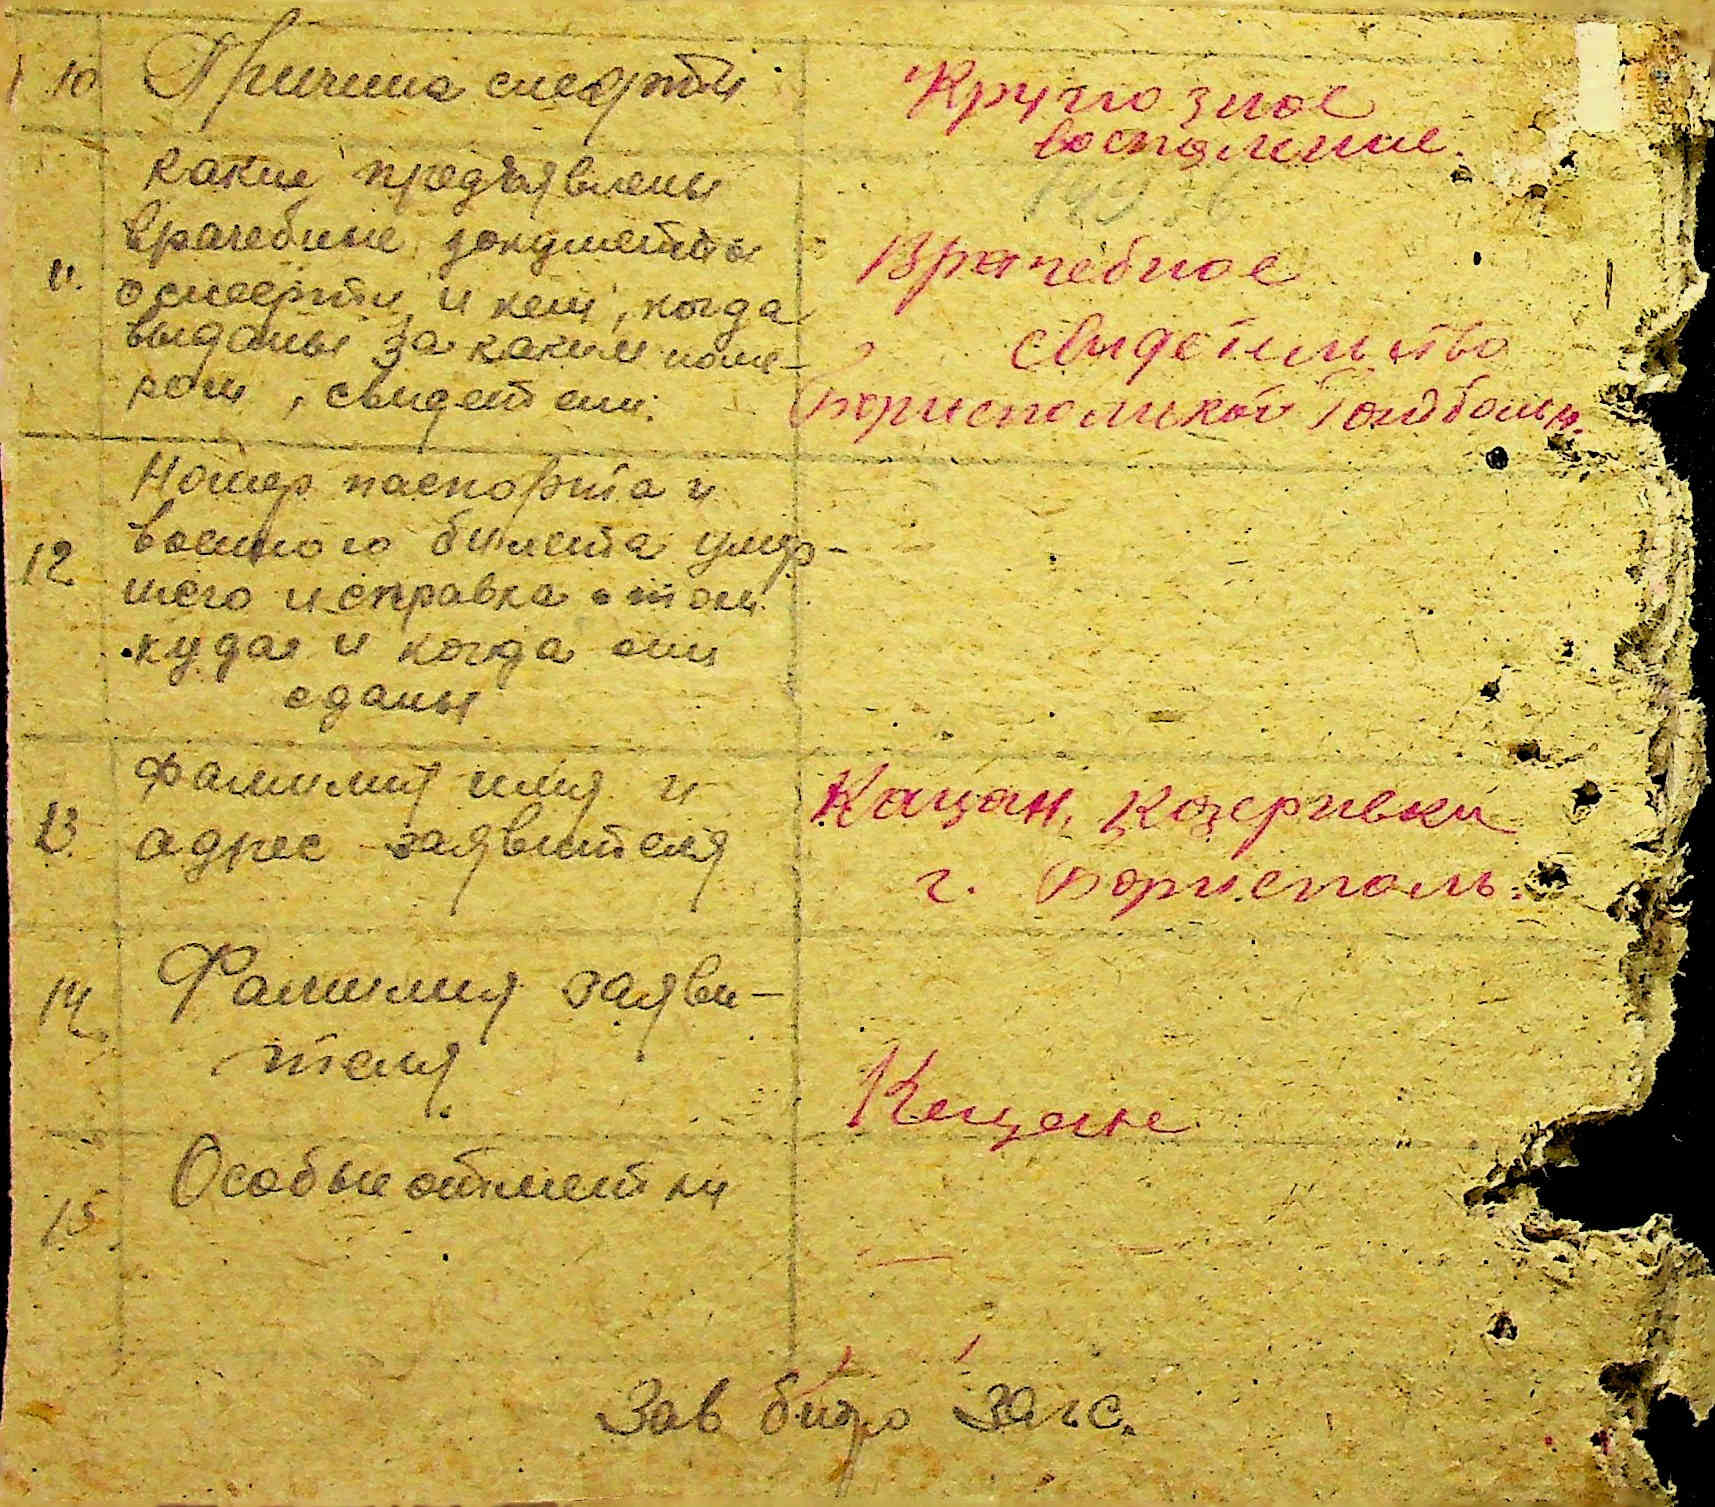 10 Причина смерти
Крупозное
воспаление.
какие предъявлены
врачебные документы
11. о смерти и кем, когда
выданы за каким номе-
ром, свидетели.
Врачебное
свидетельство
Бориспольской больн.
Номер паспорта и
военного билета умер-
12 шего и справка о том
куда и когда они
сданы
Фамилия имя и
13. адрес заявителя
Кацан,
г. Борисполь.
14 Фамилия заяви-
теля
Кацан
15. Особые отметки
Зав бюро Загс.